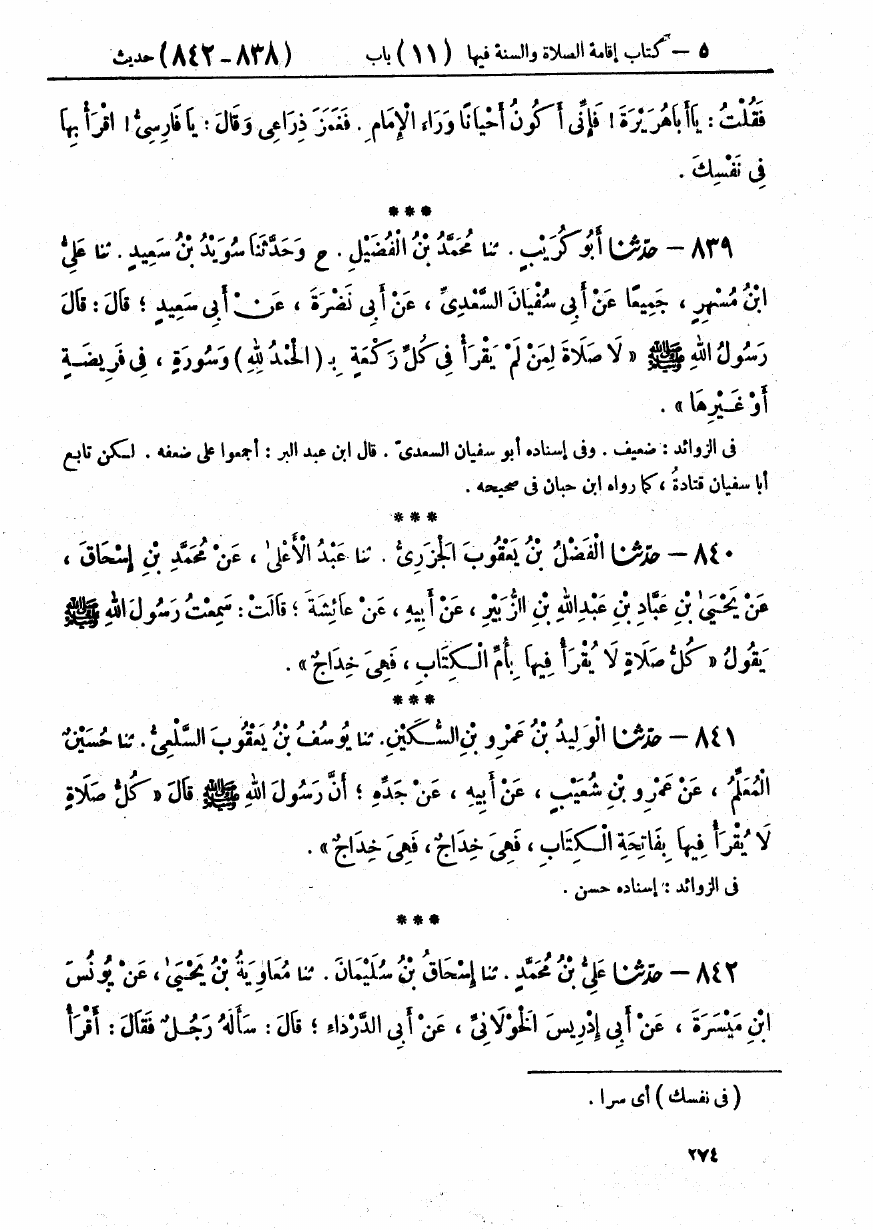 ٥ – كتاب إقامة الصلاة والسنة فيها (١١) باب (٨٣٨-٨٤٢) حديث
فَقُلْتُ : يَاأَبَاهُرَيْرَةَ ! فَإِنِّى أَكُونُ أَحْيَانًا وَرَاءِ الْإِمَامِ . فَغَمَزَ ذِرَاعِى وَقَالَ : يَا فَارِسِىُّ ! اقْرَأْ بِهَا
فِى نَفْسِكَ .
***
٨٣٩ – حَدَّثَنَا أَبُو كُرَيْبٍ . ثنا مُحَمَّدُ بْنُ الْفُضَيْلِ . ح وَحَدَّثَنَا سُوَيْدُ بْنُ سَعِيدٍ . ثنا عَلِىُّ
ابْنُ مُسْهِرٍ ، جَمِيعًا عَنْ أَبِى سُفْيَانَ السَّعْدِىِّ ، عَنْ أَبِى نَضْرَةَ ، عَنْ أَبِى سَعِيدٍ ؛ قَالَ : قَالَ
رَسُولُ اللهِ ﷺ « لَا صَلَاةَ لِمَنْ لَمْ يَقْرَأْ فِى كُلِّ رَكْعَةٍ بِـ (الْحَمْدُ لِلهِ) وَسُورَةٍ ، فِى فَرِيضَةٍ
أَوْ غَيْرِهَا » .
فى الزوائد : ضعيف . وفى إسناده أبو سفيان السعدىّ . قال ابن عبد البر : أجمعوا على ضعفه . لكن تابع
أبا سفيان قتادةُ ، كما رواه ابن حبان فى صحيحه .
***
٨٤٠ – حَدَّثَنَا الْفَضْلُ بْنُ يَعْقُوبَ الْجَزَرِىُّ . ثنا عَبْدُ الْأَعْلَىٰ ، عَنْ مُحَمَّدِ بْنِ إِسْحَاقَ ،
عَنْ يَحْيَىٰ بْنِ عَبَّادِ بْنِ عَبْدِاللهِ بْنِ الزُّبَيْرِ ، عَنْ أَبِيهِ ، عَنْ عَائِشَةَ ؛ قَالَتْ : سَمِعْتُ رَسُولَ اللهِ ﷺ
يَقُولُ « كُلُّ صَلَاةٍ لَا يُقْرَأُ فِيهَا بِأُمِّ الْكِتَابِ ، فَهِىَ خِدَاجٌ » .
***
٨٤١ – حَدَّثَنَا الْوَلِيدُ بْنُ عَمْرِو بْنِ السُّكَيْنِ. ثنا يُوسُفُ بْنُ يَعْقُوبَ السَّلْعِىُّ . ثنا حُسَيْنٌ
الْمُعَلِّمُ ، عَنْ عَمْرِو بْنِ شُعَيْبٍ ، عَنْ أَبِيهِ ، عَنْ جَدِّهِ ؛ أَنَّ رَسُولَ اللهِ ﷺ قَالَ « كُلُّ صَلَاةٍ
لَا يُقْرَأُ فِيهَا بِفَاتِحَةِ الْكِتَابِ ، فَهِىَ خِدَاجٌ ، فَهِىَ خِدَاجٌ » .
فى الزوائد : إسناده حسن .
***
٨٤٢ – حَدَّثَنَا عَلِىُّ بْنُ مُحَمَّدٍ . ثنا إِسْحَاقُ بْنُ سُلَيْمَانَ . ثنا مُعَاوِيَةُ بْنُ يَحْيَىٰ ، عَنْ يُونُسَ
ابْنِ مَيْسَرَةَ ، عَنْ أَبِى إِدْرِيسَ الْخَوْلَانِىِّ ، عَنْ أَبِى الدَّرْدَاءِ ؛ قَالَ : سَأَلَهُ رَجُلٌ فَقَالَ : أَقْرَأُ
( فى نفسك ) أى سرا .
٢٧٤